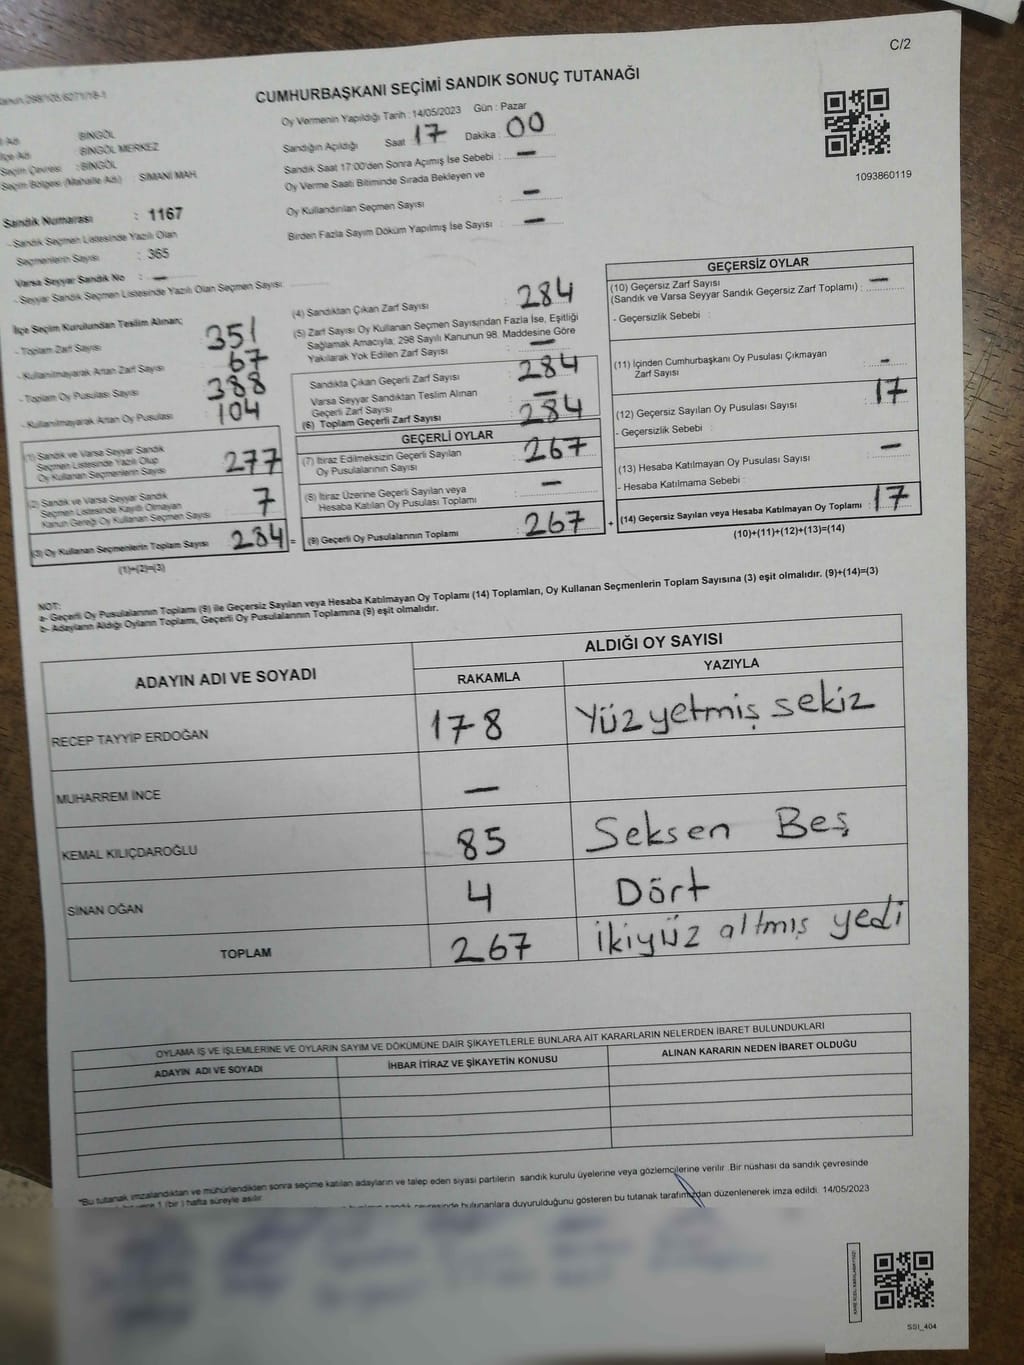 C/2
CUMHURBAŞKANI SEÇİMİ SANDIK SONUÇ TUTANAĞI
1093860119
BİNGÖL
İlçe Adı : BİNGÖL MERKEZ
Seçim Çevresi : BİNGÖL
Seçim Bölgesi (Mahalle Adı) : SİMANİ MAH.
Sandık Numarası : 1167
- Sandık Seçmen Listesinde Yazılı Olan
Seçmenlerin Sayısı : 365
Varsa Seyyar Sandık No : —
- Seyyar Sandık Seçmen Listesinde Yazılı Olan Seçmen Sayısı:
Oy Vermenin Yapıldığı Tarih : 14/05/2023 Gün : Pazar
Sandığın Açıldığı Saat 17 Dakika : 00
Sandık Saat 17:00'den Sonra Açımış İse Sebebi : —
Oy Verme Saati Bitiminde Sırada Bekleyen ve
Oy Kullandırılan Seçmen Sayısı : —
Birden Fazla Sayım Döküm Yapılmış İse Sayısı : —
İlçe Seçim Kurulundan Teslim Alınan;
- Toplam Zarf Sayısı 351
- Kullanılmayarak Artan Zarf Sayısı 67
- Toplam Oy Pusulası Sayısı 388
- Kullanılmayarak Artan Oy Pusulası 104
(1) Sandık ve Varsa Seyyar Sandık
Seçmen Listesinde Yazılı Olup
Oy Kullanan Seçmenlerin Sayısı 277
(2) Sandık ve Varsa Seyyar Sandık
Seçmen Listesinde Kayıtlı Olmayan
Kanun Gereği Oy Kullanan Seçmen Sayısı : 7
(3) Oy Kullanan Seçmenlerin Toplam Sayısı 284 =
(1)+(2)=(3)
(4) Sandıktan Çıkan Zarf Sayısı : 284
(5) Zarf Sayısı Oy Kullanan Seçmen Sayısından Fazla İse, Eşitliği
Sağlamak Amacıyla; 298 Sayılı Kanunun 98. Maddesine Göre
Yakılarak Yok Edilen Zarf Sayısı : —
Sandıkta Çıkan Geçerli Zarf Sayısı : 284
Varsa Seyyar Sandıktan Teslim Alınan
Geçerli Zarf Sayısı : —
(6) Toplam Geçerli Zarf Sayısı : 284
GEÇERLİ OYLAR
(7) İtiraz Edilmeksizin Geçerli Sayılan
Oy Pusulalarının Sayısı : 267
(8) İtiraz Üzerine Geçerli Sayılan veya
Hesaba Katılan Oy Pusulası Toplamı : —
(9) Geçerli Oy Pusulalarının Toplamı : 267 +
GEÇERSİZ OYLAR
(10) Geçersiz Zarf Sayısı
(Sandık ve Varsa Seyyar Sandık Geçersiz Zarf Toplamı) : —
- Geçersizlik Sebebi :
(11) İçinden Cumhurbaşkanı Oy Pusulası Çıkmayan
Zarf Sayısı : —
(12) Geçersiz Sayılan Oy Pusulası Sayısı : 17
- Geçersizlik Sebebi :
(13) Hesaba Katılmayan Oy Pusulası Sayısı : —
- Hesaba Katılmama Sebebi :
(14) Geçersiz Sayılan veya Hesaba Katılmayan Oy Toplamı : 17
(10)+(11)+(12)+(13)=(14)
NOT:
a- Geçerli Oy Pusulalarının Toplamı (9) ile Geçersiz Sayılan veya Hesaba Katılmayan Oy Toplamı (14) Toplamları, Oy Kullanan Seçmenlerin Toplam Sayısına (3) eşit olmalıdır. (9)+(14)=(3)
b- Adayların Aldığı Oyların Toplamı, Geçerli Oy Pusulalarının Toplamına (9) eşit olmalıdır.
ADAYIN ADI VE SOYADI ALDIĞI OY SAYISI
RAKAMLA YAZIYLA
RECEP TAYYİP ERDOĞAN 178 Yüz yetmiş sekiz
MUHARREM İNCE —
KEMAL KILIÇDAROĞLU 85 Seksen Beş
SİNAN OĞAN 4 Dört
TOPLAM 267 İkiyüz altmış yedi
OYLAMA İŞ VE İŞLEMLERİNE VE OYLARIN SAYIM VE DÖKÜMÜNE DAİR ŞİKAYETLERLE BUNLARA AİT KARARLARIN NELERDEN İBARET BULUNDUKLARI
ADAYIN ADI VE SOYADI İHBAR İTİRAZ VE ŞİKAYETİN KONUSU ALINAN KARARIN NEDEN İBARET OLDUĞU
*Bu tutanak imzalandıktan ve mühürlendikten sonra seçime katılan adayların ve talep eden siyasi partilerin sandık kurulu üyelerine veya gözlemcilerine verilir. Bir nüshası da sandık çevresinde
1 (bir) hafta süreyle asılır.
bulunanlara duyurulduğunu gösteren bu tutanak tarafımızdan düzenlenerek imza edildi. 14/05/2023
SSI_404